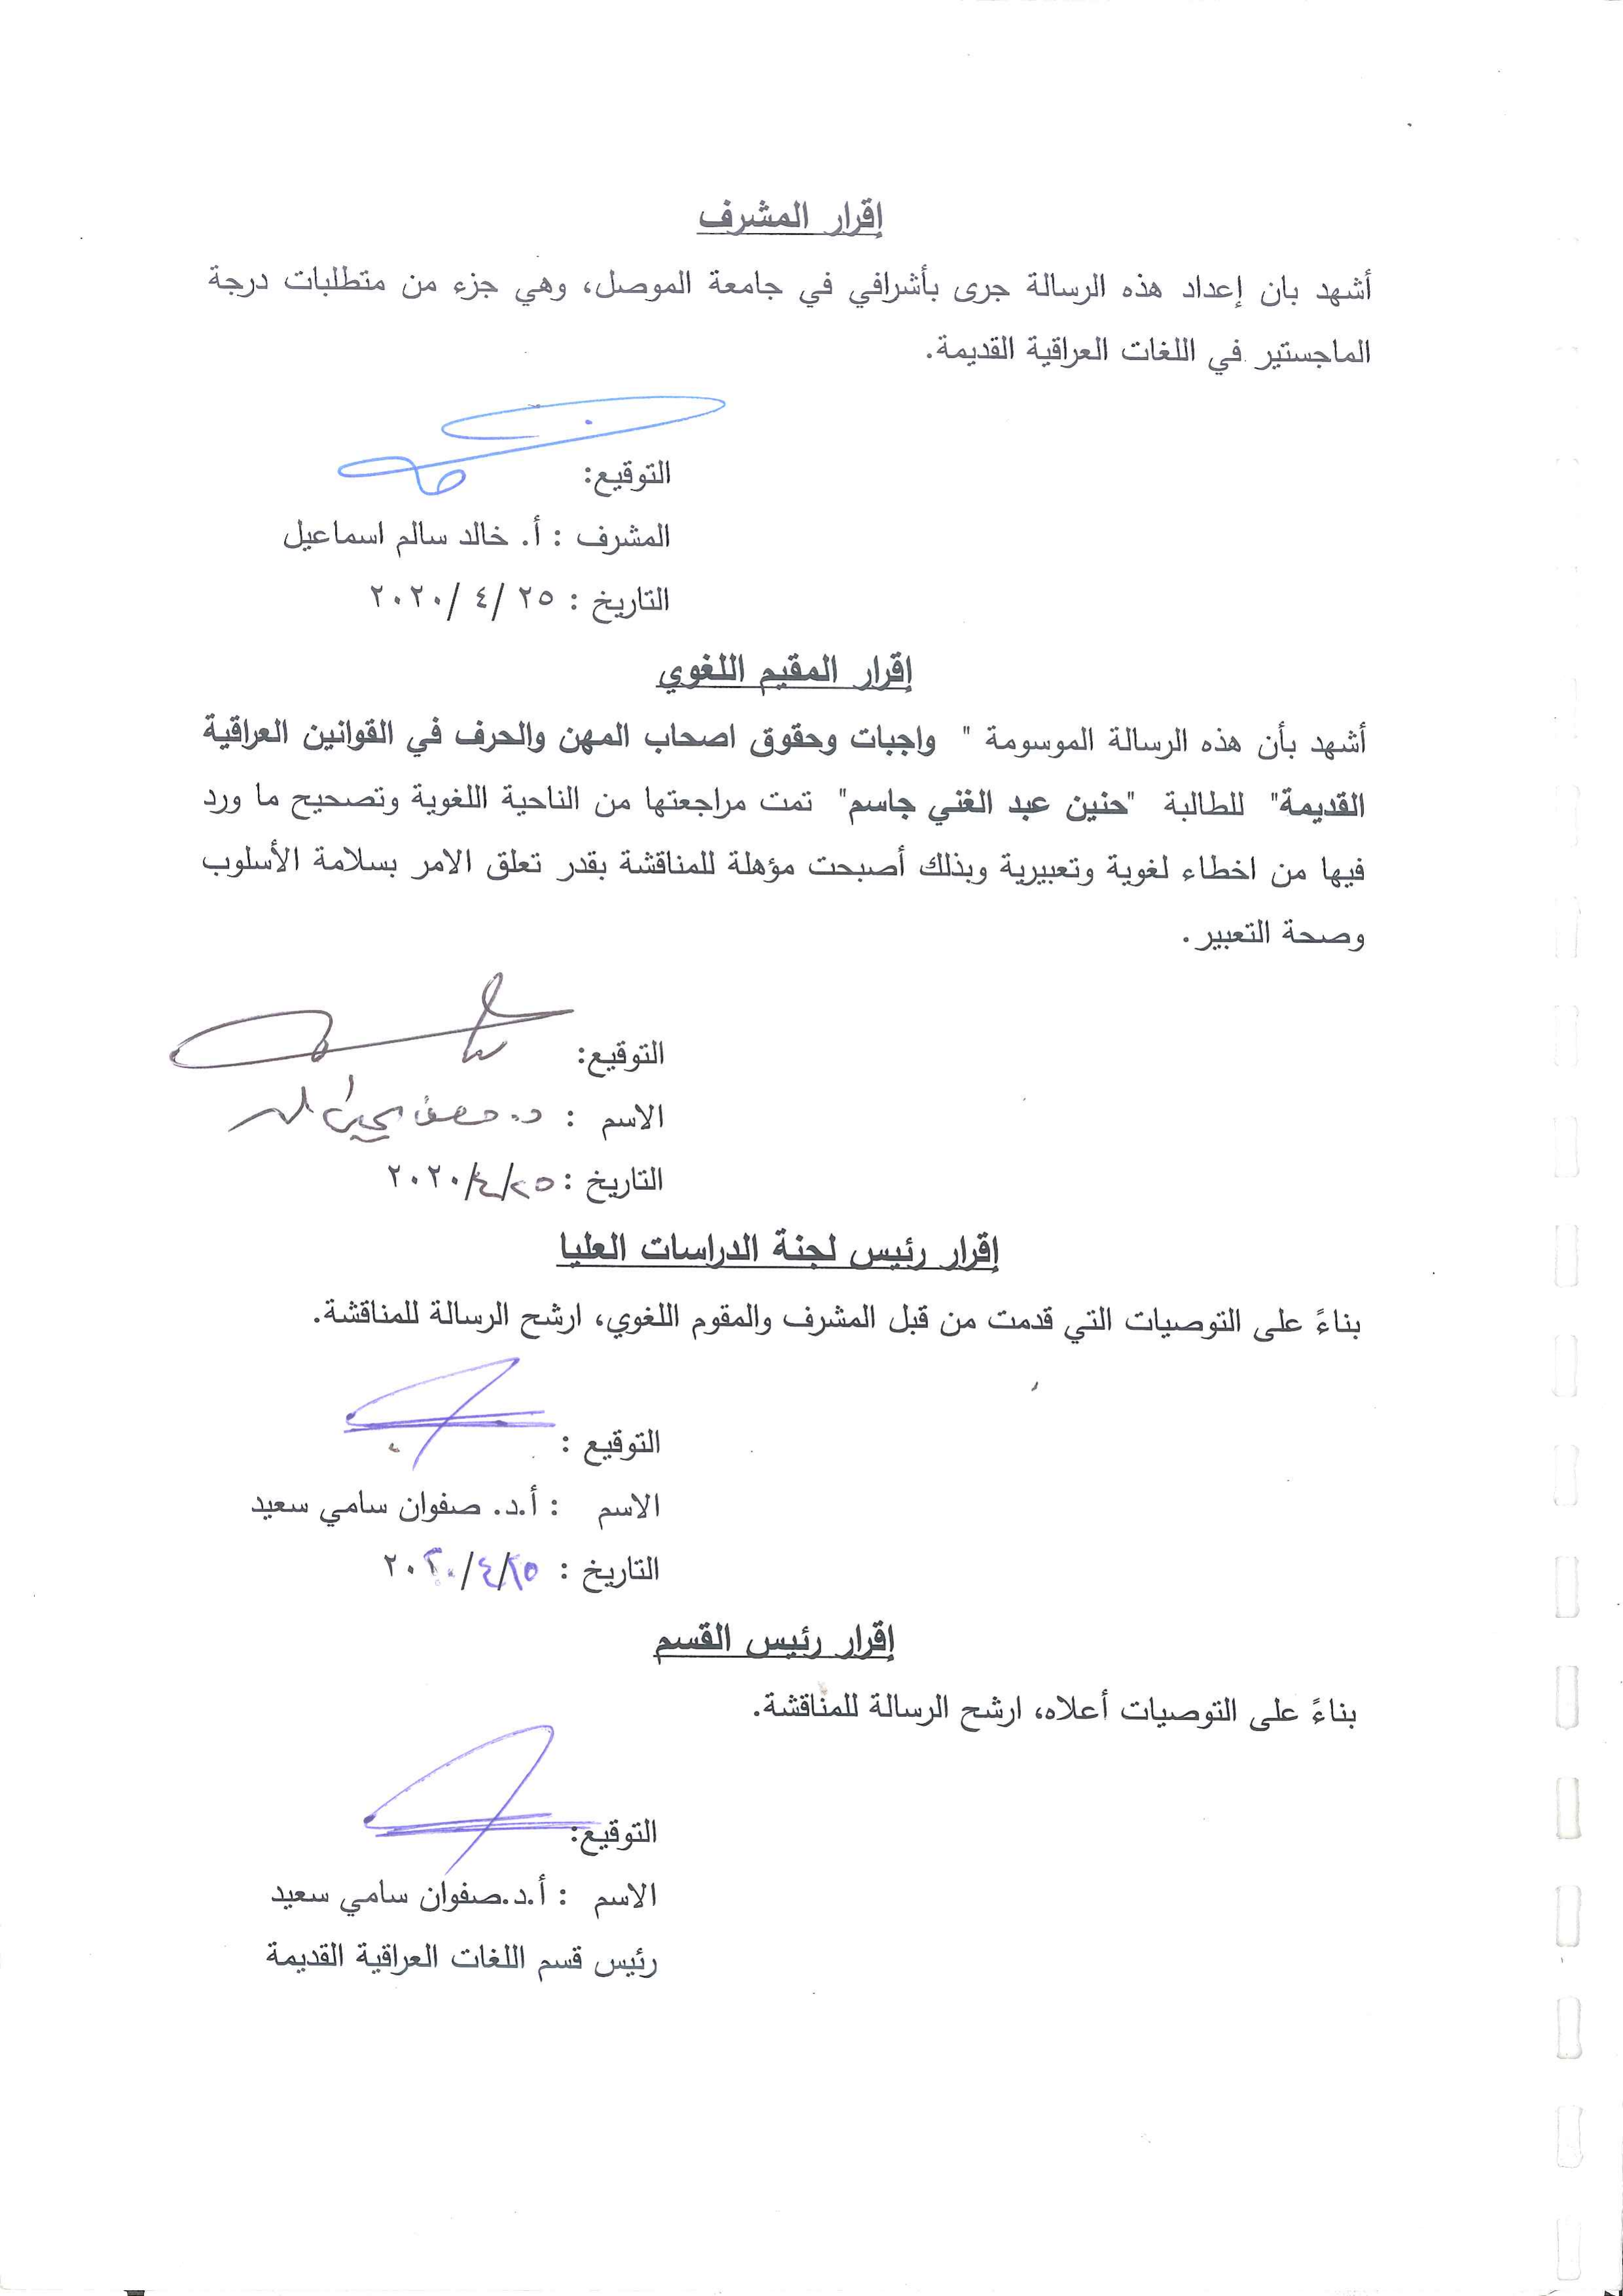 إقرار المشرف
أشهد بان إعداد هذه الرسالة جرى بأشرافي في جامعة الموصل، وهي جزء من متطلبات درجة
الماجستير في اللغات العراقية القديمة.
التوقيع:
المشرف : أ. خالد سالم اسماعيل
التاريخ : ٢٥ /٤ /٢٠٢٠
إقرار المقيم اللغوي
أشهد بأن هذه الرسالة الموسومة " واجبات وحقوق اصحاب المهن والحرف في القوانين العراقية
القديمة" للطالبة "حنين عبد الغني جاسم" تمت مراجعتها من الناحية اللغوية وتصحيح ما ورد
فيها من اخطاء لغوية وتعبيرية وبذلك أصبحت مؤهلة للمناقشة بقدر تعلق الامر بسلامة الأسلوب
وصحة التعبير.
التوقيع:
الاسم : د.
التاريخ : ٢٥/٤/٢٠٢٠
إقرار رئيس لجنة الدراسات العليا
بناءً على التوصيات التي قدمت من قبل المشرف والمقوم اللغوي، ارشح الرسالة للمناقشة.
التوقيع :
الاسم : أ.د. صفوان سامي سعيد
التاريخ : ٢٥/٤/٢٠٢٠
إقرار رئيس القسم
بناءً على التوصيات أعلاه، ارشح الرسالة للمناقشة.
التوقيع:
الاسم : أ.د.صفوان سامي سعيد
رئيس قسم اللغات العراقية القديمة